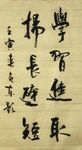 學習進取
揚長避短
壬寅